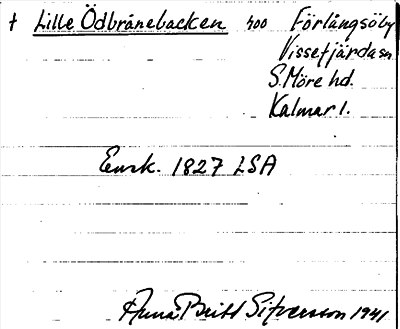 † Lille Ödbränebacken 400 Förlångsöby
Vissefjärda sn
S. Möre hd.
Kalmar l.
Ensk. 1827 LSA
Anna Britt 1941